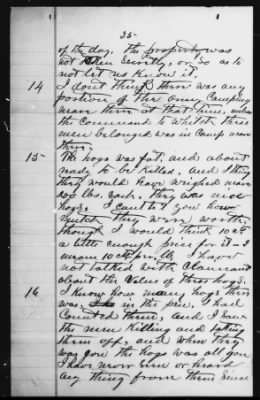 35
of the day. The property was
not taken secretly, or so as to
not let us know it.
14 I dont think there was any
portion of the army camping
near them at that time, unless
the command to which these
men belonged was in camp near
them.
15 The hogs was fat, and about
ready to be killed, and I think
they would have weighed near
200 lbs. each. They was nice
hogs. I cant say how
much they were worth
though I would think 10 cts
a little enough price for it - I
mean 10 cts pr lb. I have
not talked with Claimant
about the value of these hogs.
16 I know how many hogs there
was in the pen. I had
Counted them, and I saw
the men Killing and taking
them off, and when they
was gon the hogs was all gon
I have never seen or heard
any thing from them since